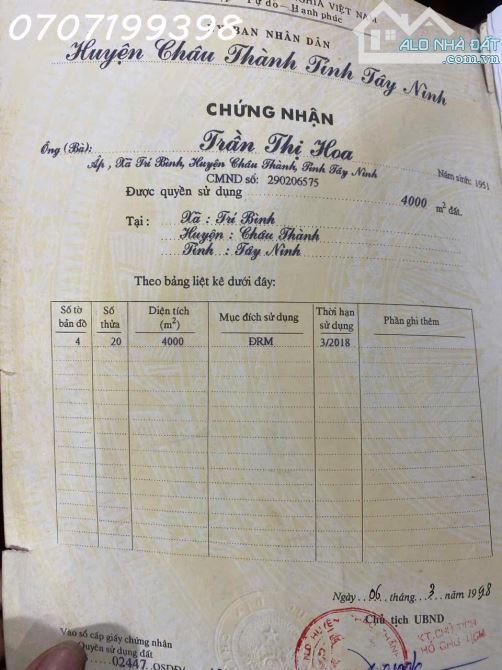 NGHĨA VIỆT NAM
Tự do – Hạnh phúc
0707199398
ALO NHÀ ĐẤT
.com.vn
ỦY BAN NHÂN DÂN
Huyện Châu Thành Tỉnh Tây Ninh
CHỨNG NHẬN
Ông (Bà): Trần Thị Hoa
Năm sinh: 1951
Ấp, Xã Trí Bình, Huyện Châu Thành, Tỉnh Tây Ninh
CMND số: 290206575
Được quyền sử dụng 4000 m² đất.
Tại : Xã : Trí Bình
Huyện : Châu Thành
Tỉnh : Tây Ninh
Theo bảng liệt kê dưới đây:
Số tờ bản đồ Số thửa Diện tích (m²) Mục đích sử dụng Thời hạn sử dụng Phần ghi thêm
4 20 4000 ĐRM 3/2018
Ngày 06 tháng 3 năm 1998
Chủ tịch UBND
KT. CHỦ TỊCH
PHÓ CHỦ TỊCH
Vào sổ cấp giấy chứng nhận
Quyền sử dụng đất
02447 QSDĐ/